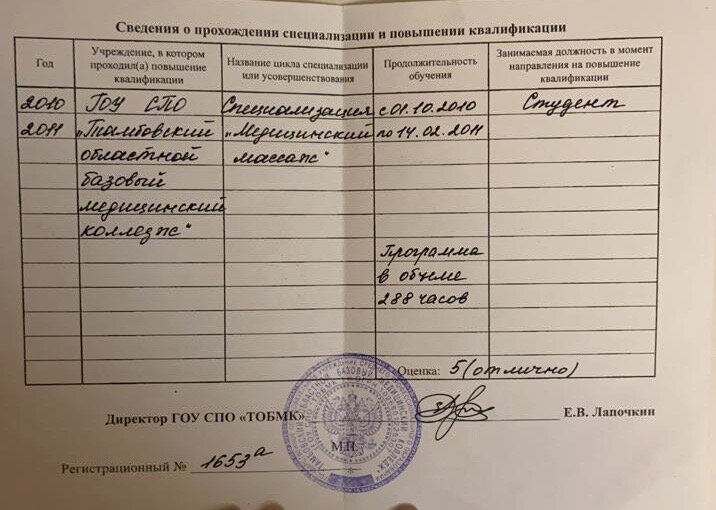 Сведения о прохождении специализации и повышении квалификации
Год
Учреждение, в котором
проходил(а) повышение
квалификации
Название цикла специализации
или усовершенствования
Продолжительность
обучения
Занимаемая должность в момент
направления на повышение
квалификации
2010 ГОУ СПО Специализация с 01.10.2010 Студент
2011 „Тамбовский „Медицинский по 14.02.2011
областной массаж"
базовый
медицинский
колледж"
Программа
в объеме
288 часов
Оценка: 5 (отлично)
Директор ГОУ СПО «ТОБМК» Е.В. Лапочкин
М.П.
Регистрационный № 1653а